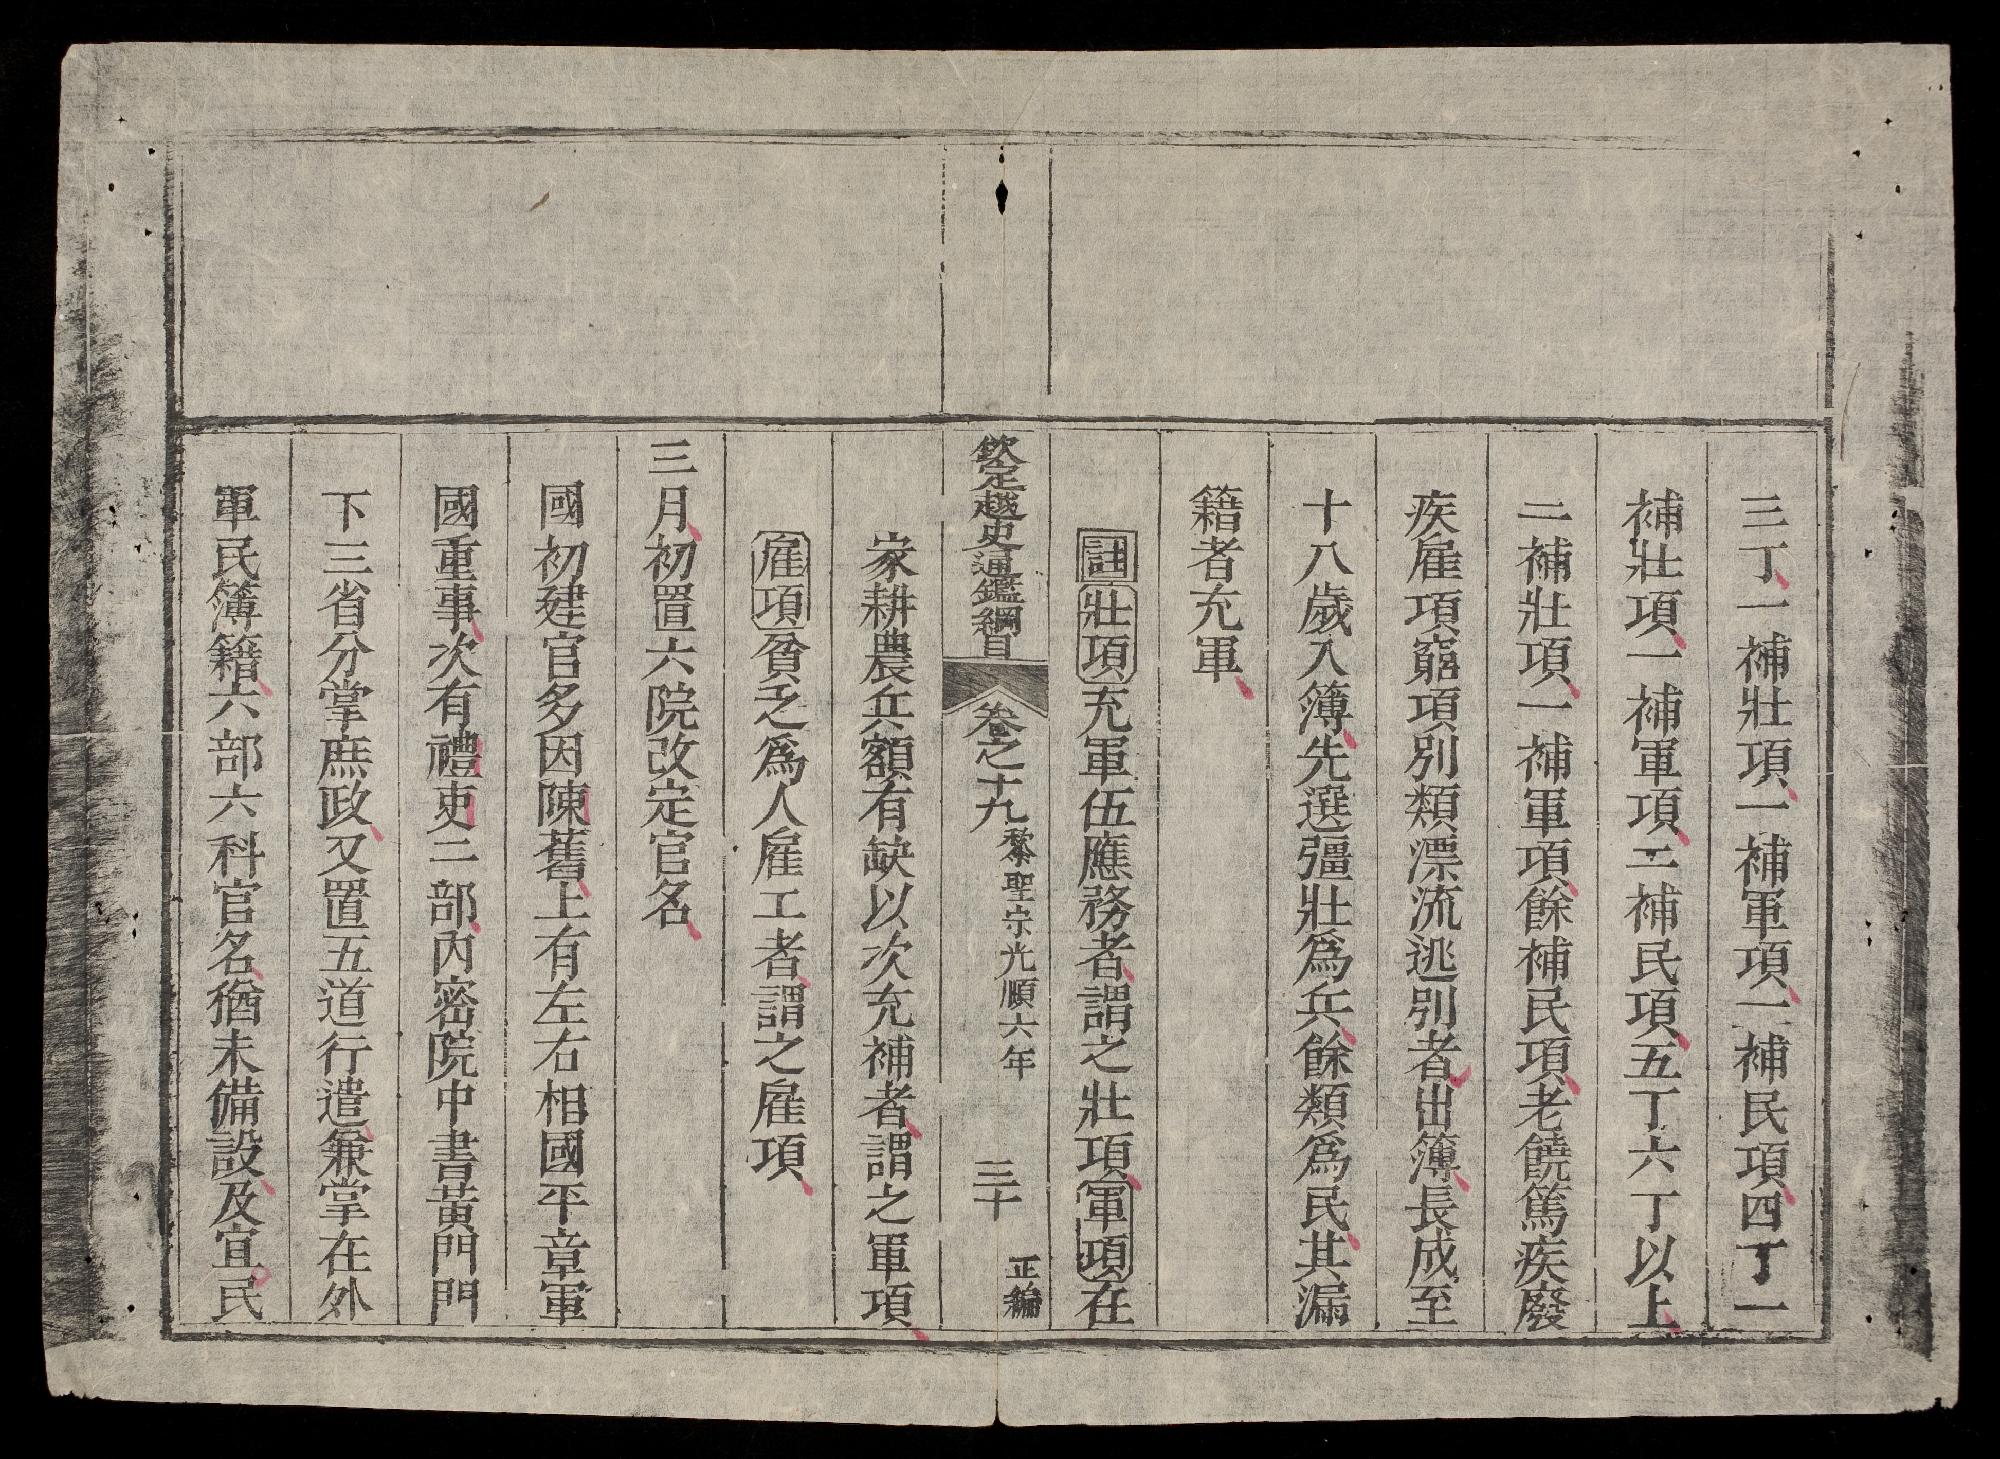 三丁一補壯項一補軍項一補民項四丁一
補壯項一補軍項二補民項五丁六丁以上
二補壯項一補軍項餘補民項老饒篤疾廢
疾雇項窮項別類漂流逃別者出簿長成至
十八歲入簿先選彊壯爲兵餘類爲民其漏
籍者充軍
註壯項充軍伍應務者謂之壯項軍項在
欽定越史通鑑綱目 卷之十九 黎聖宗光順六年 三十 正編
家耕農兵額有缺以次充補者謂之軍項
雇項貧乏爲人雇工者謂之雇項
三月初置六院改定官名
國初建官多因陳舊上有左右相國平章軍
國重事次有禮吏二部內密院中書黃門門
下三省分掌庶政又置五道行遣兼掌在外
軍民簿籍六部六科官名猶未備設及宜民